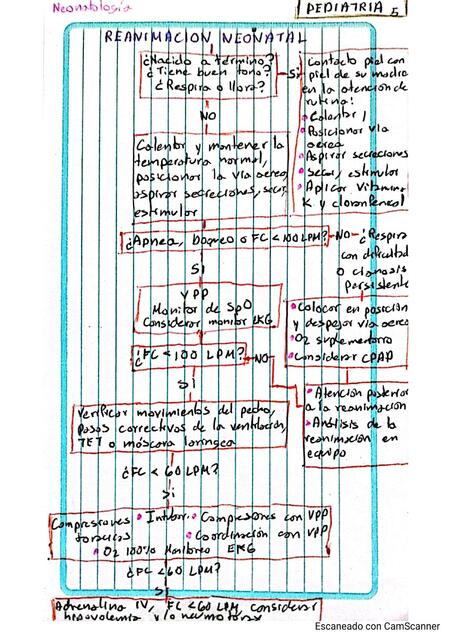 Neonatología
PEDIATRIA 5
REANIMACION NEONATAL
¿Nacido a término?
¿Tiene buen tono?
¿Respira o llora?
Si
Contacto piel con
piel de su madre
en la atención de
rutina:
• Calentar
• Posicionar vía
aerea
• Aspirar secreciones
• Secar, estimular
• Aplicar Vitamina
K y cloranfenicol
NO
Calentar y mantener la
temperatura normal,
posicionar la vía aerea,
aspirar secreciones, secar,
estimular
¿Apnea, boqueo o FC <100 LPM?
NO
¿Respira
con dificultad
o cianosis
persistente
SI
VPP
Monitor de SpO
Considerar monitor EKG
• Colocar en posición
y despejar vía aerea
• O2 suplementario
• Considerar CPAP
¿FC <100 LPM?
NO
Si
• Atención posterior
a la reanimación
• Análisis de la
reanimación en
equipo
Verificar movimientos del pecho,
pasos correctivos de la ventilación,
TET o máscara laringea
¿FC < 60 LPM?
Si
Compresiones • Intubar • Compresiones con VPP
toracicas • Coordinación con VPP
• O2 100% Monitoreo EKG
¿FC <60 LPM?
Si
Adrenalina IV, FC <60 LPM, considerar
hipovolemia y/o neumotorax
Escaneado con CamScanner